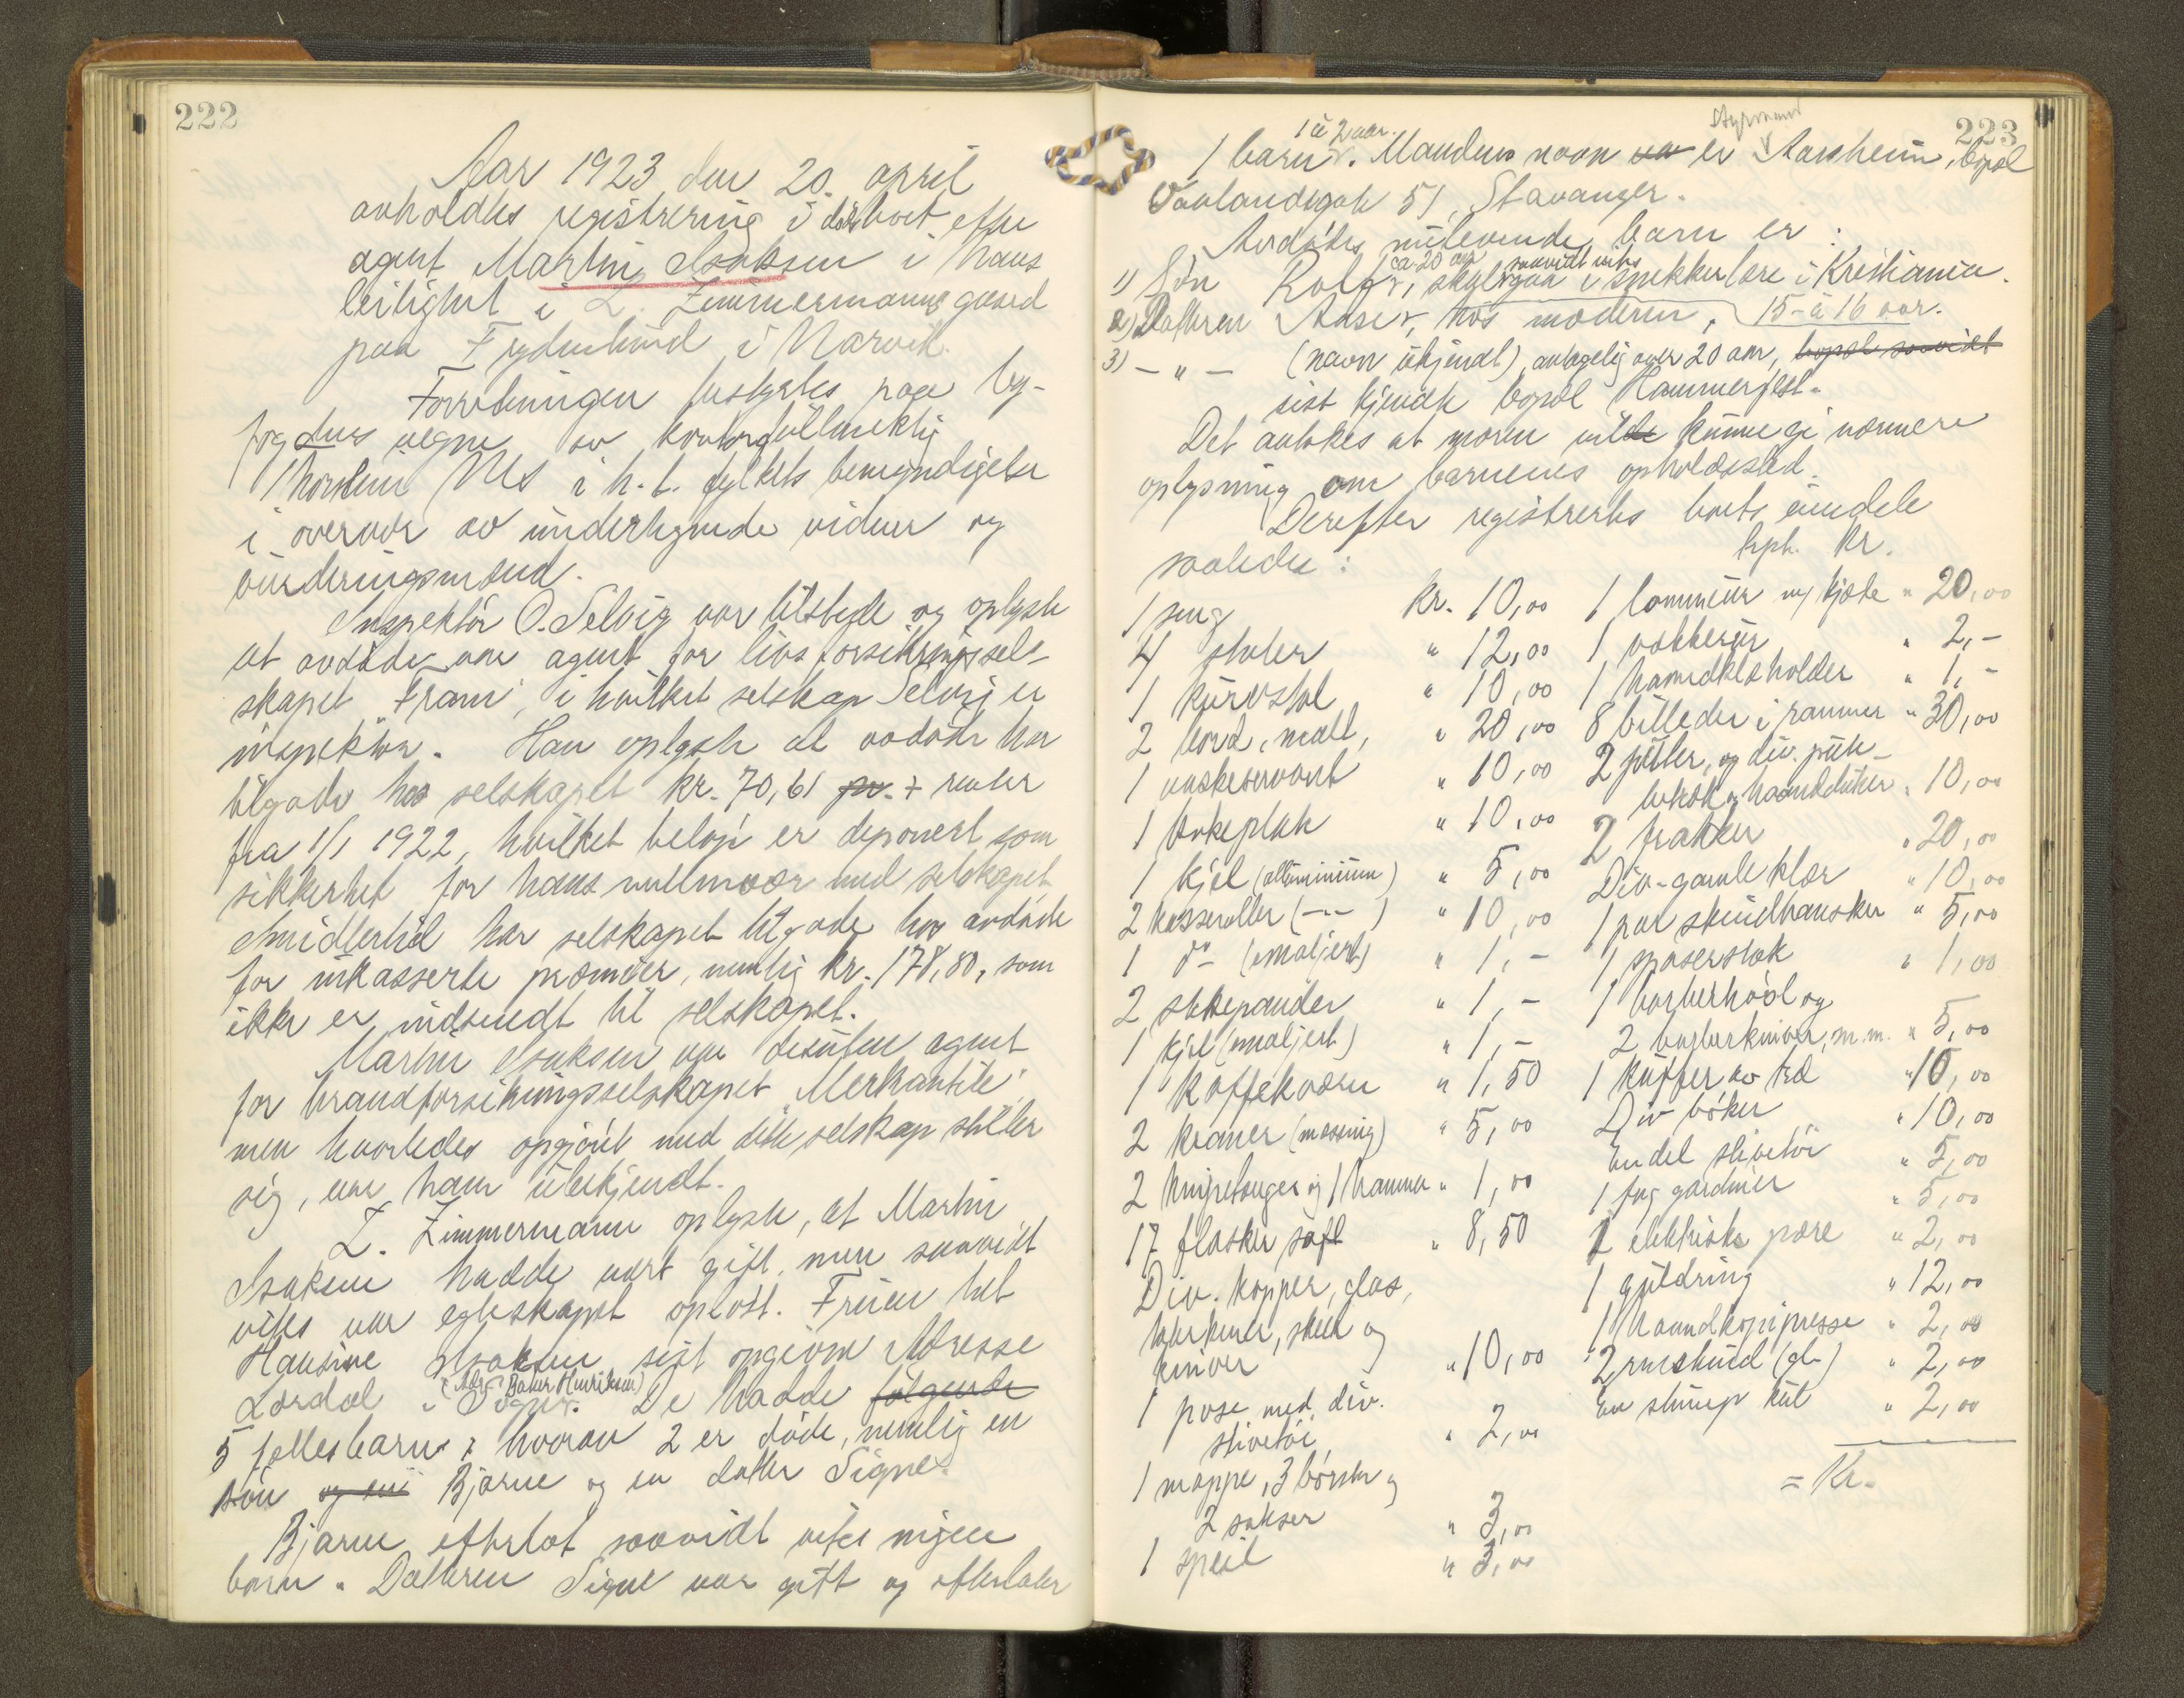 222
Aar 1923 den 20. april
avholdtes registrering i dødsboet efter
agent Martin Isaksen i hans
leilighet i L. Zimmermanns gaard
paa Frydenlund i Narvik.
Forretningen bestyrtes paa by-
fogdens vegne av kontorfuldmektig
i h.t. fylkets bemyndigelse
i overvær av undertegnede vidner og
vurderingsmænd.
Inspektør O. Selvig var tilstede og oplyste
at avdøde var agent for livsforsikringssel-
skapet "Fram", i hvilket selskap Selvig er
inspektør. Han oplyste at avdøde har
tilgode hos selskapet kr. 70,61 pr. + renter
fra 1/1 1922, hvilket beløp er deponert som
sikkerhet for hans mellemvær med selskapet.
Imidlertid har selskapet tilgode hos avdøde
for inkasserte præmier, nemlig kr. 178,80, som
ikke er indsendt til selskapet.
Martin Isaksen var desuten agent
for brandforsikringsselskapet "Merkantile"
men hvorledes opgjøret med dette selskap stiller
sig, var ham ubekjendt.
L. Zimmermann oplyste, at Martin
Isaksen hadde vært gift, men saavidt
vites var egteskapet opløst. Fruen het
Hansine Isaksen, sist opgivne Adresse
(Adr. Baker Henriksen)
Lærdal i Sogn. De hadde følgende
5 fellesbarn, hvorav 2 er døde, nemlig en
søn og en Bjarne og en datter Signe.
Bjarne efterlot saavidt vites ingen
barn. Datteren Signe var gift og efterlater
223
1 à 2 aar. Styrmand
1 barn. Mandens navn var er Aarsheim, bopæl
Vaalandsgate 51, Stavanger.
Avdødes nulevende barn er:
ca. 20 aar saavidt vites
1) Søn Rolf, skal gaa i snekkerlære i Kristiania.
2) Datteren Aase, hos moderen, 15 à 16 aar.
3) - " - (navn ukjendt), antagelig over 20 aar, bopæl saavidt
sist kjendte bopæl Hammerfest.
Det antokes at moren vilde kunne gi nærmere
oplysning om barnenes opholdssted.
Derefter registrertes boets eiendele
saaledes:
Trph. kr.
1 seng kr. 10,00
4 stoler " 12,00
1 kurvstol " 10,00
2 bord, malt, " 20,00
1 vaskeservant " 10,00
1 kokeplate " 10,00
1 kjel (alluminium) " 5,00
2 kasseroller (-"-) " 10,00
1 do (emaljert) " 1,-
2 stekepander " 1,-
1 kjel (emaljert) " 1,-
1 kaffekværn " 1,50
2 kraner (messing) " 5,00
2 knipetænger og 1 hammer " 1,00
17 flasker saft " 8,50
Div. kopper, glas,
tallerkener, skeer og
kniver " 10,00
1 pose med div.
skivetøi " 2,00
1 mappe, 3 børster og
2 sakser " 3,00
1 speil " 3,00
1 lommeur m/ kjæde " 20,00
1 vækkerur " 2,-
1 haandklæholder " 1,-
8 billeder i rammer " 30,00
2 puter, og div. pute-
trekk og haandduker " 10,00
2 frakker " 20,00
Div. gamle klær " 10,00
1 par skindhansker " 5,00
1 spaserstok " 1,00
1 barberhøvl og
2 barberkniver, m.m. " 5,00
1 kuffer av træ " 10,00
Div bøker " 10,00
En del skivetøi " 5,00
1 fag gardiner " 5,00
1 elektrisk pære " 2,00
1 guldring " 12,00
1 haandkopipresse " 2,00
2 renskind (gl.) " 2,00
En slump kul " 2,00
= Kr.